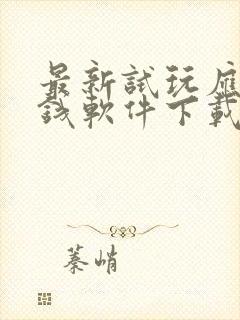 最新試玩應
錢軟件下載
蓁峭